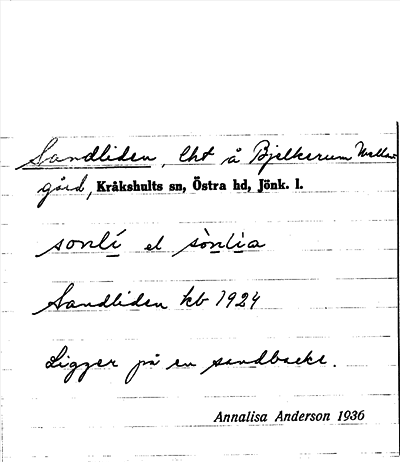 Sandliden, lht å Bjelkerum Mellan-
gård, Kråkshults sn, Östra hd, Jönk. l.
sonlí el sònlia
Sandliden kb 1924
Ligger på en sandbacke.
Annalisa Anderson 1936